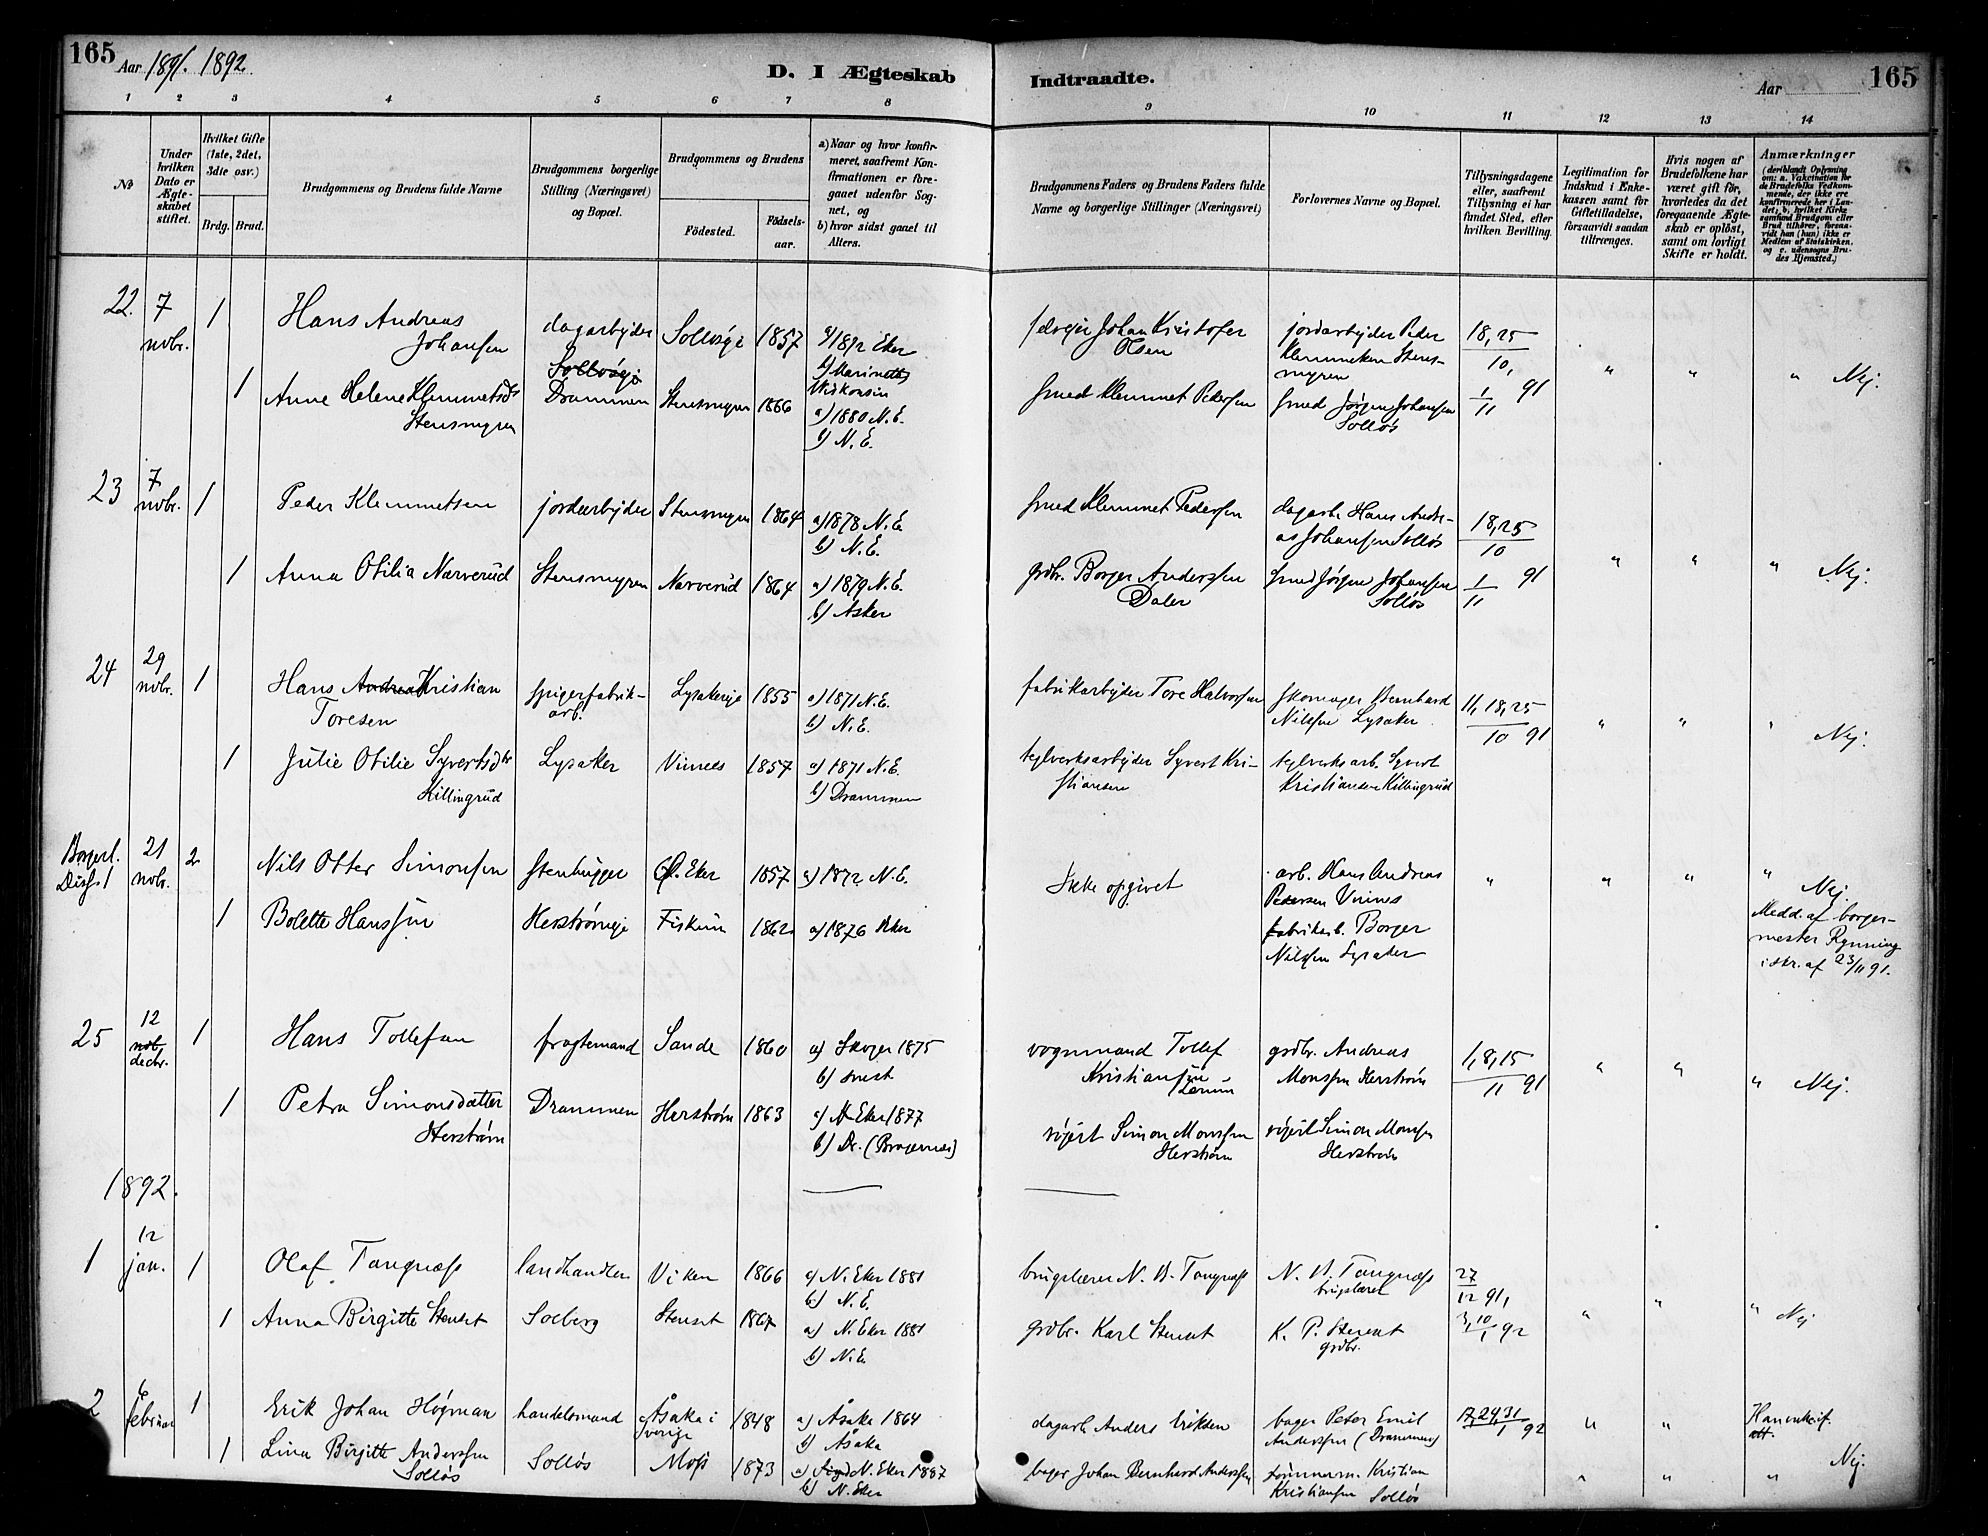 165 Aar 1891. 1892.
D. I Ægteskab Indtraadte.
Aar 165
1 2 3 4 5 6 7 8 9 10 11 12 13 14
№
Under hvilken Dato er Ægteskabet stiftet.
Hvilket Gifte (1ste, 2det, 3die osv.)
Brdg. Brud.
Brudgommens og Brudens fulde Navne
Brudgommens borgerlige Stilling (Næringsvei) og Bopæl.
Brudgommens og Brudens
Fødested.
Fødsels-aar.
a) Naar og hvor konfirmeret, saafremt Konfirmationen er foregaaet udenfor Sognet, og
b) hvor sidst gaaet til Alters.
Brudgommens Faders og Brudens Faders fulde Navne og borgerlige Stillinger (Næringsvei)
Forlovernes Navne og Bopæl.
Tillysningsdagene eller, saafremt Tillysning ei har fundet Sted, efter hvilken Bevilling.
Legitimation for Indskud i Enkekassen samt for Giftetilladelse, forsaavidt saadan tiltrænges.
Hvis nogen af Brudefolkene har været gift før, hvorledes da det foregaaende Ægteskab er opløst, samt om lovligt Skifte er holdt.
Anmærkninger (deriblandt Oplysning om: a. Vakcination for de Brudefolks Vedkommende, der ikke ere konfirmerede her i Landet; b. hvilket Kirkesamfund Brudgom eller Brud tilhører, forsaavidt han (hun) ikke er Medlem af Statskirken, og c. udensogns Brudes Hjemsted.)
22. 7 novbr. 1 Hans Andreas Johansen dagarbejder Solløsje Drammen Solløseje 1857 a) 1872 Eker b) Marinette Viskonsin Johan Kristofer Olsen jordarbejder Peder Klemmetsen Stensmyren 18,25/10, 1/11 91 " " " Nej.
1 Anne Helene Klemmetsdtr Stensmyren Stensmyren 1866 a) 1880 N.E. b) N.E. smed Klemmet Pedersen smed Jørgen Johansen Solløs
23 7 novbr. 1 Peder Klemmetsen jordarbejder Stensmyren 1864 a) 1878 N.E. b) N.E. smed Klemmet Pedersen dagarb. Hans Andreas Johansen Solløs 18,25/10 1/11 91 " " " Nej.
1 Anna Otilia Narverud Stensmyren Narverud 1864 a) 1879 N.E. b) Asker grdbr. Borger Anderssen Daler smed Jørgen Johansen Solløs
24 29 novbr. 1 Hans Andreas Kristian Toresen spigerfabrik-arb. Lysakereje 1855 a) 1871 N.E. b) N.E. fabrikarbejder Tore Halvorsen skomager Bernhard Nilssen Lysaker 11,18,25/10 91 " " " Nej.
1 Julie Otilie Syvertsdtr Killingrud Lysaker Vinnes 1857 a) 1871 N.E. b) Drammen teglverksarbejder Syvert Kristiansen teglverksarb. Syvert Kristiansen Killingrud
Borgerl. 1 21 novbr. 2 Nils Otter Simonsen stenhugger Ø. Eker 1857 a) 1872 N.E. Ikke opgivet arb. Hans Andreas Pedersen Vinnes " " " " Nej.
1 Bolette Hanssen Herstrømeje Fiskum 1862 a) 1876 Eker fabrikarb. Borger Nilssen Lysaker Medd. af borgermester Rynning i skr. af 23/11 91.
25 12 novb. decbr. 1 Hans Tollefsen fragtemand Sande 1860 a) Skoger 1875 b) vognmand Tollef Kristiansen Lerum grdbr. Andreas Monssen Herstrøm 1,8,15/11 91 " " " Nej.
1 Petra Simonsdatter Herstrøm Drammen Herstrøm 1863 a) N Eker 1877 b) Dr. (Bragernes) Simon Monssen Herstrøm Simon Monssen Herstrøm
1892.
1 12 jan. 1 Olaf Tangnæss landhandler Viken 1866 a) N. Eker 1881 b) N.E. brugslærer N. B. Tangnæss N. B. Tangnæss brugslærer 27/12 91, 3,10/1 92 " " " Nej
1 Anna Birgitte Stenset Solberg Stenset 1867 a) N. Eker 1881 b) N.E. grdbr. Karl Stenset K. P. Stenset grdbr.
2 6 februar 1 Erik Johan Høgman handelsmand Åsaka i Sverige 1848 a) Åsaka 1864 b) Åsaka dagarb. Anders Eriksen bager Peter Emil Anderssen (Drammen) 17,24,31/1 92 " "
1 Lina Birgitte Anderssen Solløs Solløs Moss 1873 a) N. Eker 1887 b) N. Eker bager Johan Bernhard Anderssen tømmerm. Kristian Kristiansen Solløs " " " Nej.